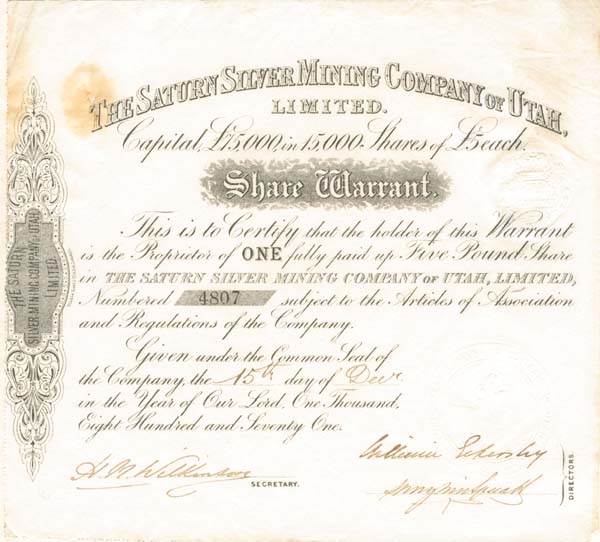 THE SATURN SILVER MINING COMPANY OF UTAH,
LIMITED.
Capital, £75,000, in 15,000 Shares of £5 each.
Share Warrant.
This is to Certify that the holder of this Warrant
is the Proprietor of ONE fully paid up Five Pound Share
in THE SATURN SILVER MINING COMPANY OF UTAH, LIMITED,
Numbered 4807 subject to the Articles of Association
and Regulations of the Company.
Given under the Common Seal of
the Company, the 15th day of Decr
in the Year of Our Lord, One Thousand,
Eight Hundred and Seventy One.
H. N. Wilkinson
SECRETARY.
William
DIRECTORS.
THE SATURN
SILVER MINING COMPANY OF UTAH
LIMITED